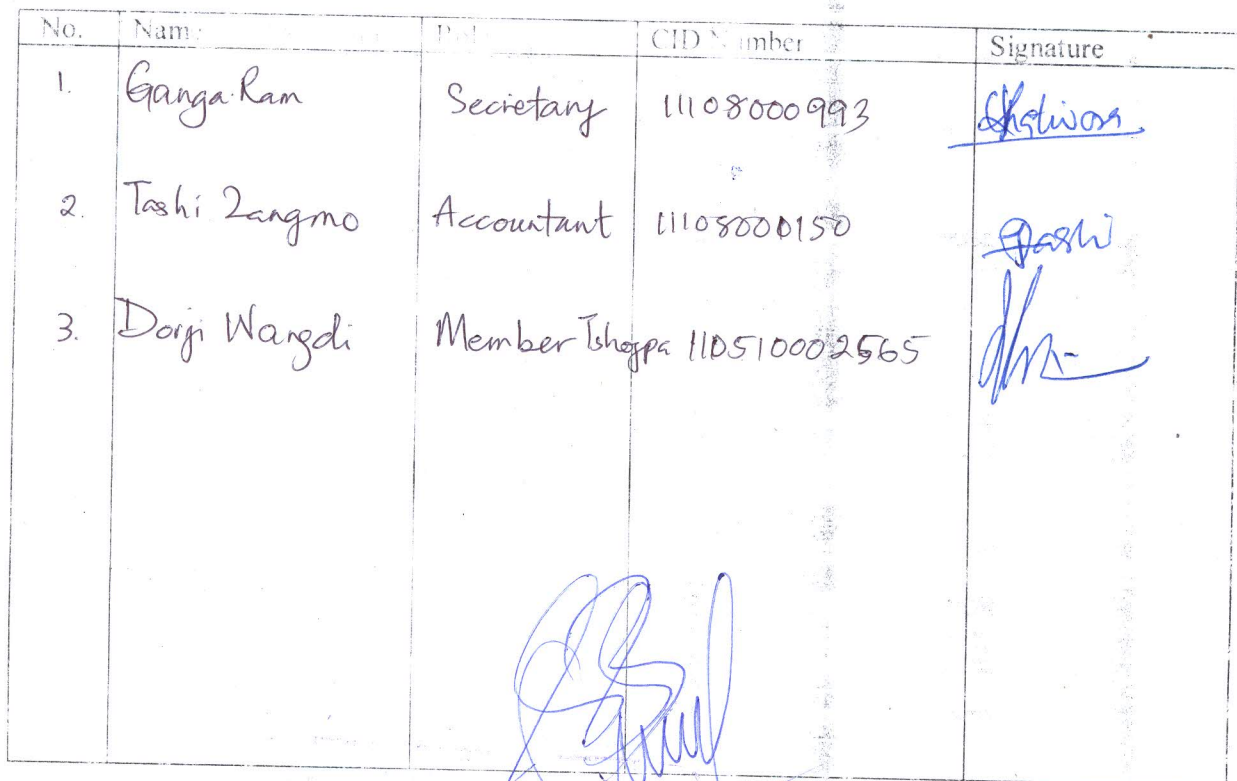 No. Name Role CID Number Signature
1. Ganga Ram Secretary 11108000993
2. Tashi Zangmo Accountant 11108000150 Tashi
3. Dorji Wangdi Member Tshogpa 110510002565